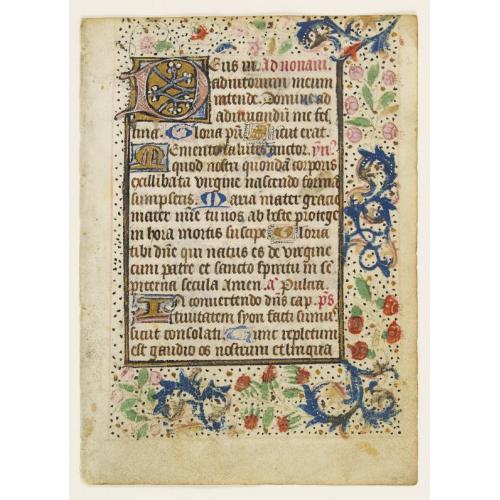 Deus in. ad nonam.
adiutorium meum
intende. Domine ad
adiuuandum me fes
tina. Gloria pri sicut erat.
Memento salutis auctor. ymn.
quod nostri quondam corporis
ex illibata virgine nascendo formam
sumpseris. Maria mater gracie
mater mie tu nos ab hoste protege
in hora mortis suscipe Gloria
tibi dne qui natus es de virgine
cum patre et sancto spiritu in se
piterna secula Amen. a Pulcra.
In conuertendo dns cap. ps
tiuitatem syon facti sumus
sicut consolati. Tunc repletum
est gaudio os nostrum et lingua